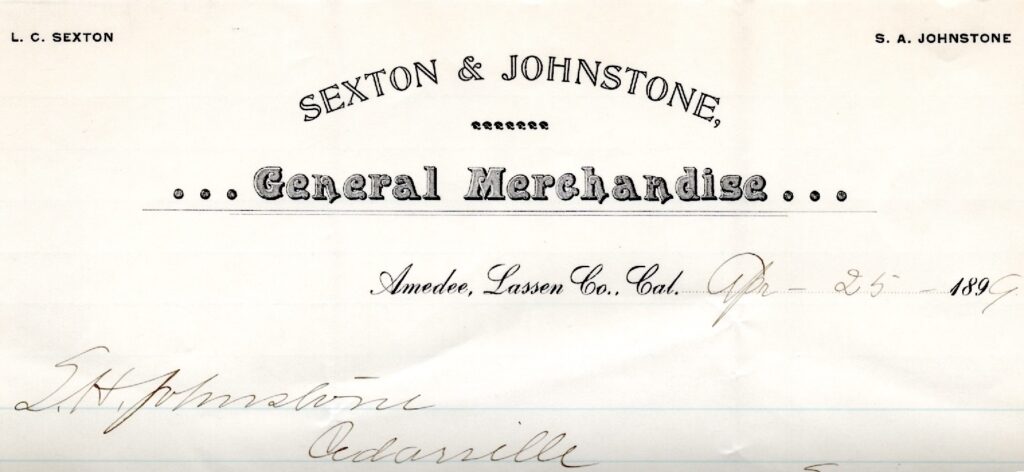 L. C. SEXTON
S. A. JOHNSTONE
SEXTON & JOHNSTONE,
...General Merchandise...
Amedee, Lassen Co., Cal. Apr - 25 - 1899
S. H. Johnstone
Cedarville